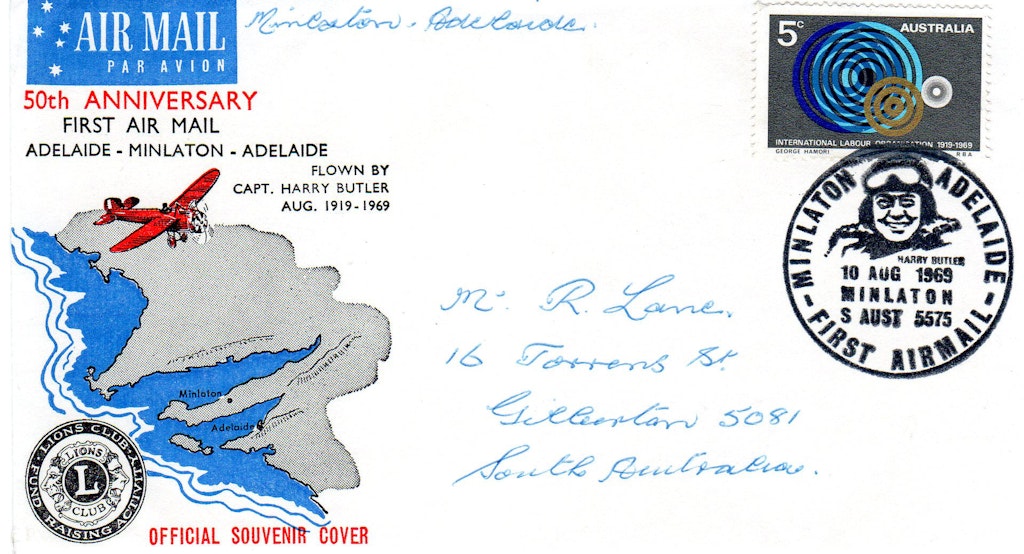 AIR MAIL
PAR AVION
Minlaton - Adelaide.
50th ANNIVERSARY
FIRST AIR MAIL
ADELAIDE - MINLATON - ADELAIDE
FLOWN BY
CAPT. HARRY BUTLER
AUG. 1919-1969
Minlaton
Adelaide
LIONS CLUB
FUND RAISING ACTIVITY
LIONS
L
CLUB
OFFICIAL SOUVENIR COVER
5c AUSTRALIA
INTERNATIONAL LABOUR ORGANISATION 1919-1969
GEORGE HAMORI RBA
MINLATON ADELAIDE
HARRY BUTLER
10 AUG 1969
MINLATON
S AUST 5575
- FIRST AIRMAIL -
Mr. R. Lane.
16 Torrens St.
Gilberton 5081
South Australia.